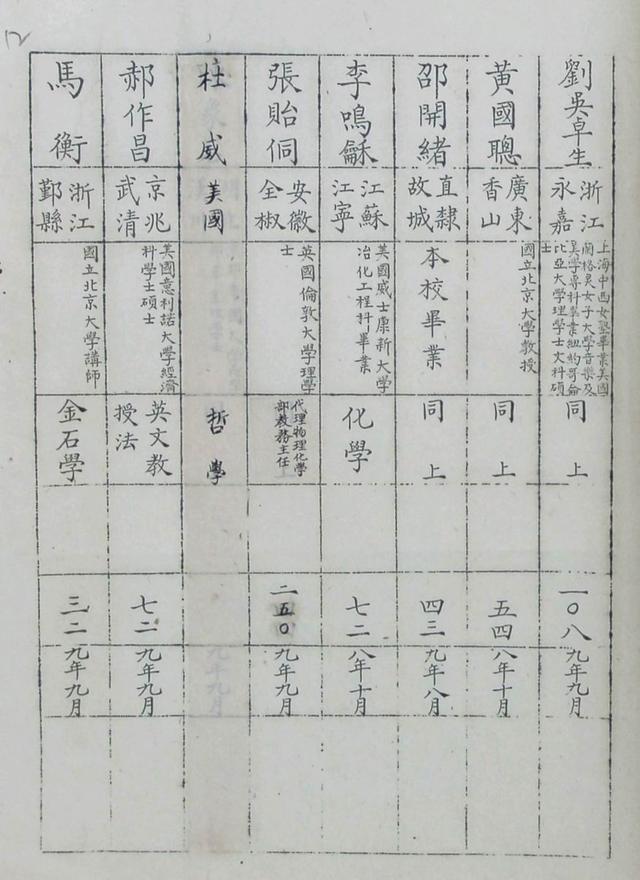 12
劉吳卓生
浙江
永嘉
上海中西女塾畢業美國
蘭格員女子大學音樂及
美學專科畢業紐約哥倫
比亞大學理學士文科碩
士
同上
一〇八
九年九月
黃國聰
廣東
香山
國立北京大學教授
同上
五四
八年十月
邵開緒
直隸
故城
本校畢業
同上
四三
九年八月
李鳴龢
江蘇
江寧
美國威士康新大學
冶化工程科畢業
化學
七二
八年十月
張貽侗
安徽
全椒
英國倫敦大學理學
士
代理物理化學
部教務主任
二五〇
九年九月
杜威
美國
哲學
九年九月
郝作昌
京兆
武清
美國意利諾大學經濟
科學士碩士
英文教
授法
七二
九年九月
馬衡
浙江
鄞縣
國立北京大學講師
金石學
三二
九年九月